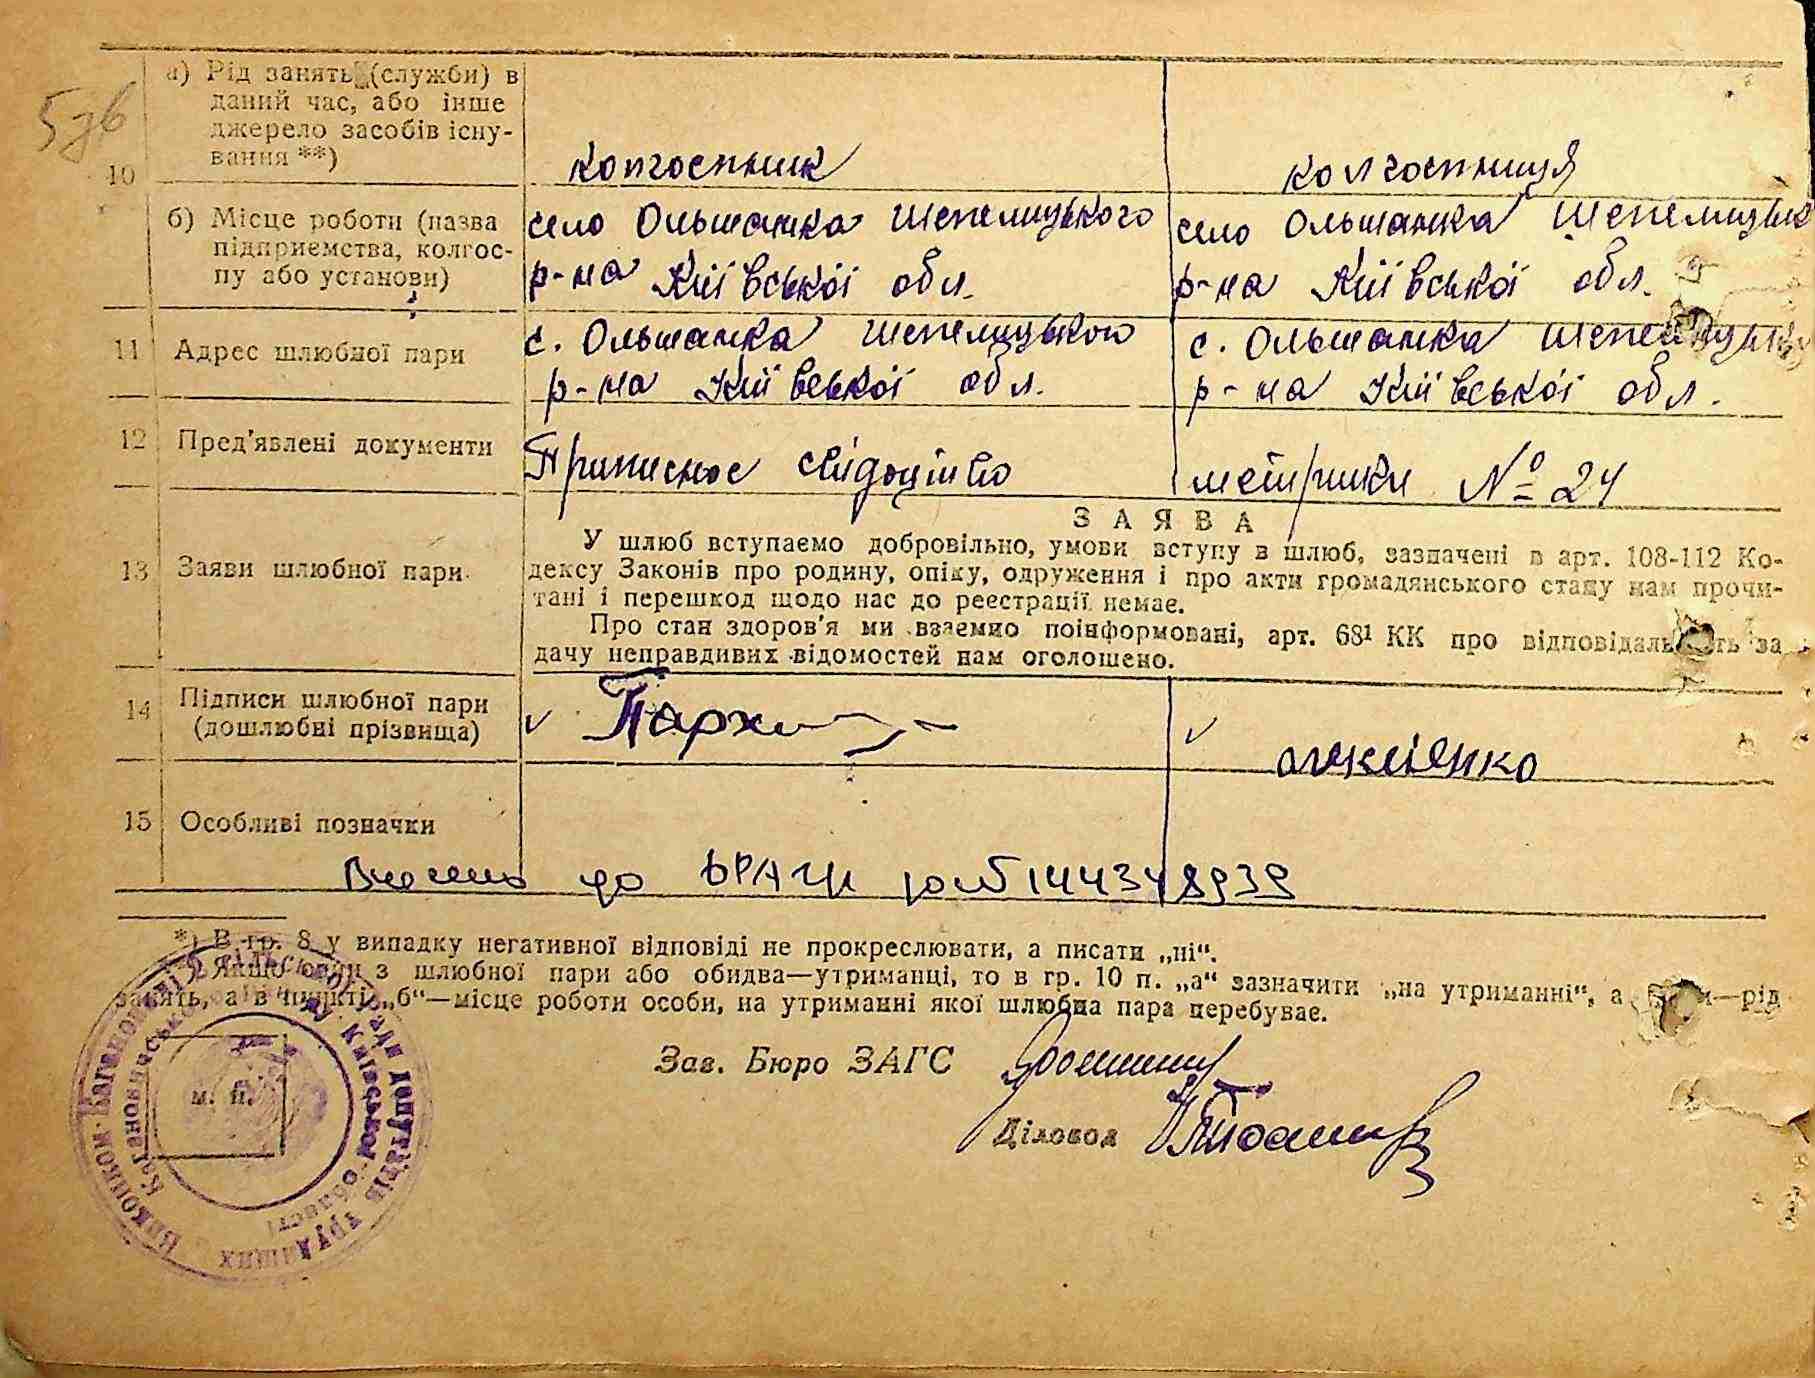 5зв
10
а) Рід занять (служби) в
даний час, або інше
джерело засобів існу-
вання **)
колгоспник
колгоспниця
б) Місце роботи (назва
підприємства, колгос-
пу або установи)
село Ольшанка Шепелицького
р-на Київської обл.
село Ольшанка Шепелицьк
р-на Київської обл.
11
Адрес шлюбної пари
с. Ольшанка Шепелицького
р-на Київської обл.
с. Ольшанка
р-на Київської обл.
12
Пред'явлені документи
Приписное свідоцтво
метрики № 24
13
Заяви шлюбної пари
ЗАЯВА
У шлюб вступаємо добровільно, умови вступу в шлюб, зазначені в арт. 108-112 Ко-
дексу Законів про родину, опіку, одруження і про акти громадянського стану нам прочи-
тані і перешкод щодо нас до реєстрації немає.
Про стан здоров'я ми взаємно поінформовані, арт. 68¹ КК про відповідальність за
дачу неправдивих відомостей нам оголошено.
14
Підписи шлюбної пари
(дошлюбні прізвища)
✓ Парх
✓
15
Особливі позначки
Внесено до ДРАЦС
*) В гр. 8 у випадку негативної відповіді не прокреслювати, а писати „ні“.
**) Якщо один з шлюбної пари або обидва—утриманці, то в гр. 10 п. „а“ зазначити „на утриманні“, а рід
занять, а в пункті „б“—місце роботи особи, на утриманні якої шлюбна пара перебуває.
Зав. Бюро ЗАГС
Діловод
м. п.
Виконком Кагановичської сільської Ради депутатів трудящих
Кагановичського р-ну Київської області